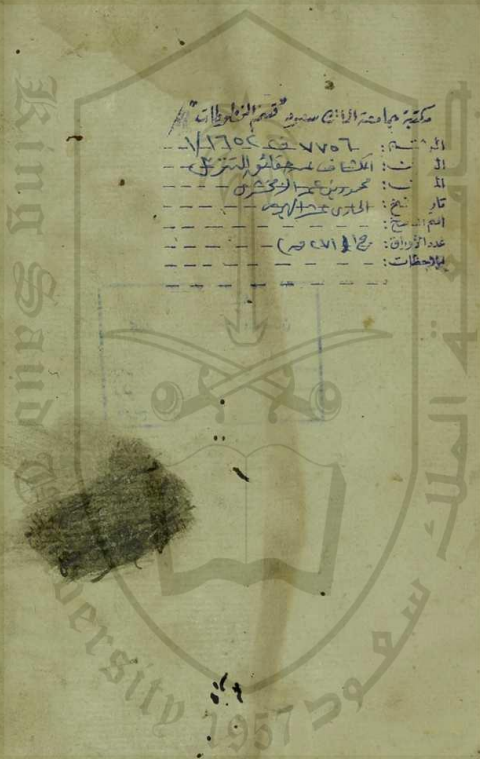 مكتبة جامعة الملك سعود "قسم المخطوطات"
الرقم: ٧٧٥٦ ف ١٦٥٢/١
الكتاب: الكشاف عن حقائق التنزيل
المؤلف: محمود بن عمر الزمخشري
تاريخ النسخ: الحادي عشر الهجري
اسم الناسخ:
عدد الأوراق: ج١ (٢٧١ ق)
ملاحظات:
King Saud University
جامعة الملك سعود
1957